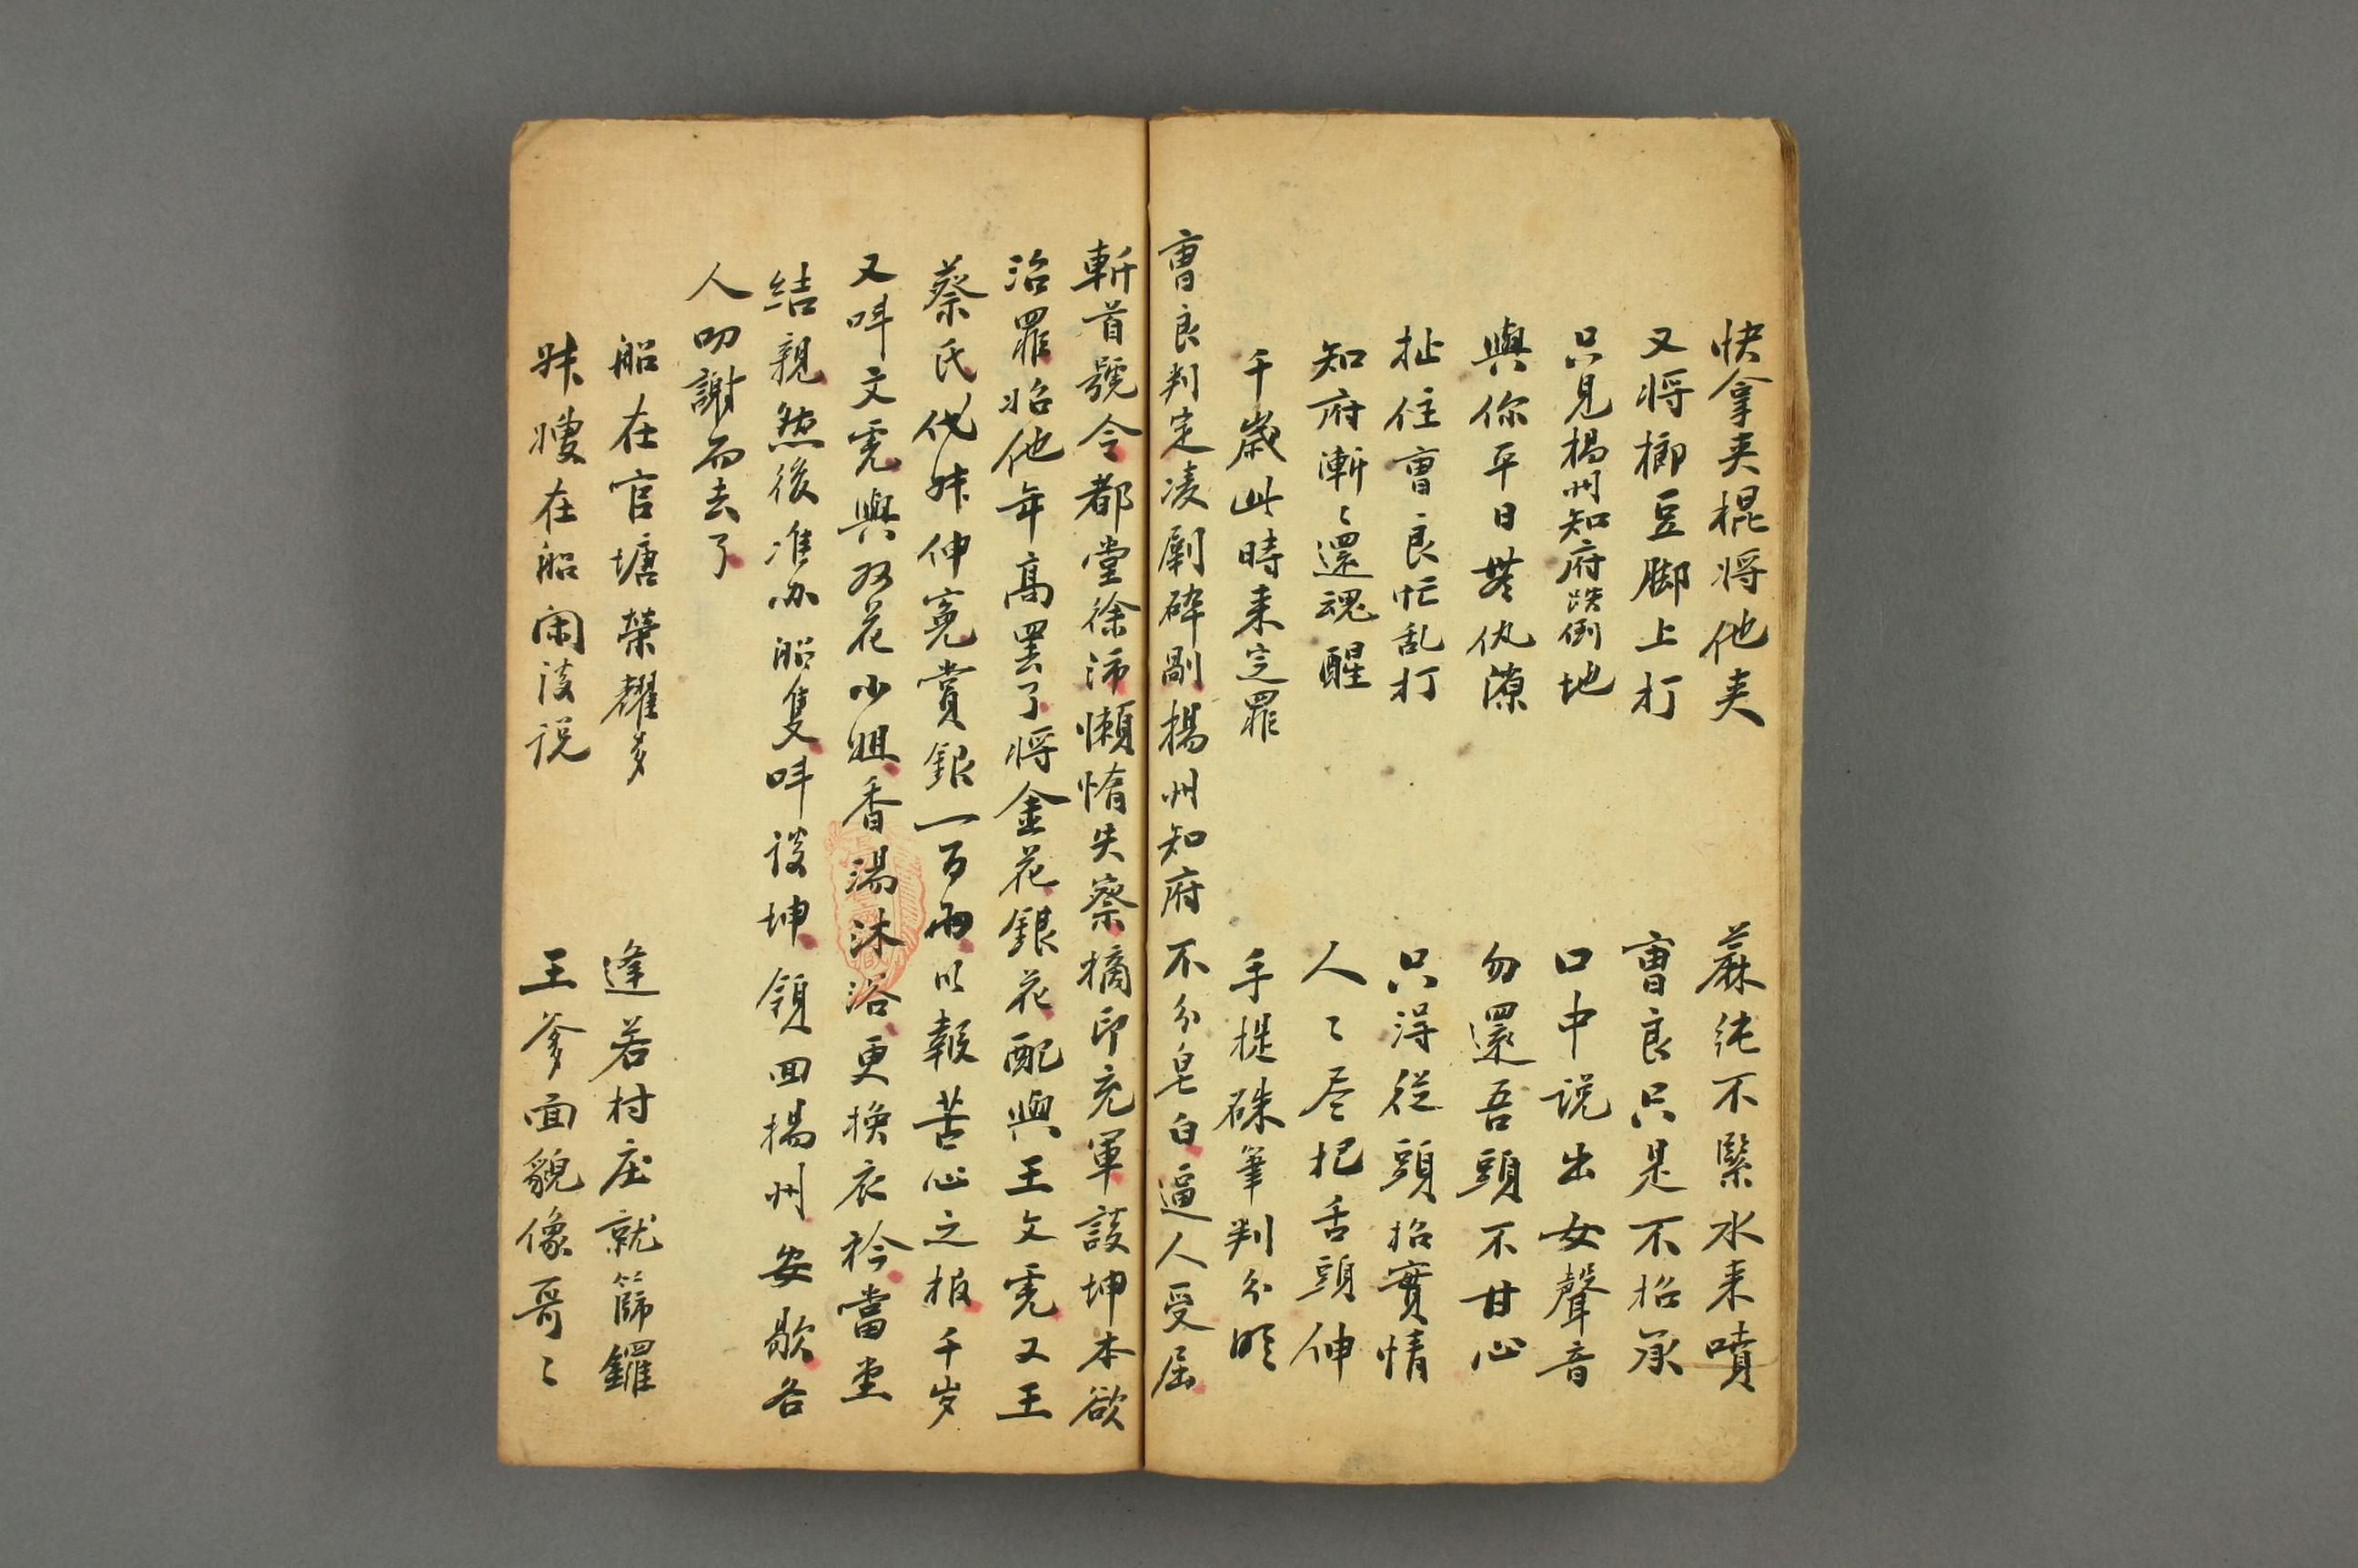 快拿夹棍将他夹　蔴绳不緊水来噴
又将榔豆脚上打　曺良只是不招承
只見楊州知府跌倒地　口中说出女聲音
與你平日無仇　勿還吾頭不甘心
扯住曺良忙乱打　只得從頭招實情
知府漸〻還魂醒　人〻尽把舌頭伸
千歳此時来定罪　手提硃筆判分明
曺良判定凌剮碎剮揚州知府不分皂白逼人受屈
斬首號令都堂徐沛懶惰失察摘印充軍談坤本欲
治罪招他年高罢了将金花銀花配與王文秀又王
蔡氏代妹伸寃賞銀一百两以報苦心之报千岁
又呌文秀與双花小姐香湯沐浴更换衣衿當堂
結親然後准办船隻呌談坤領回揚州安歇各
人叩謝而去了
船在官塘榮耀多　逢若村庄就篩鑼
妹嫂在船闲談说　王爹面貌像哥〻